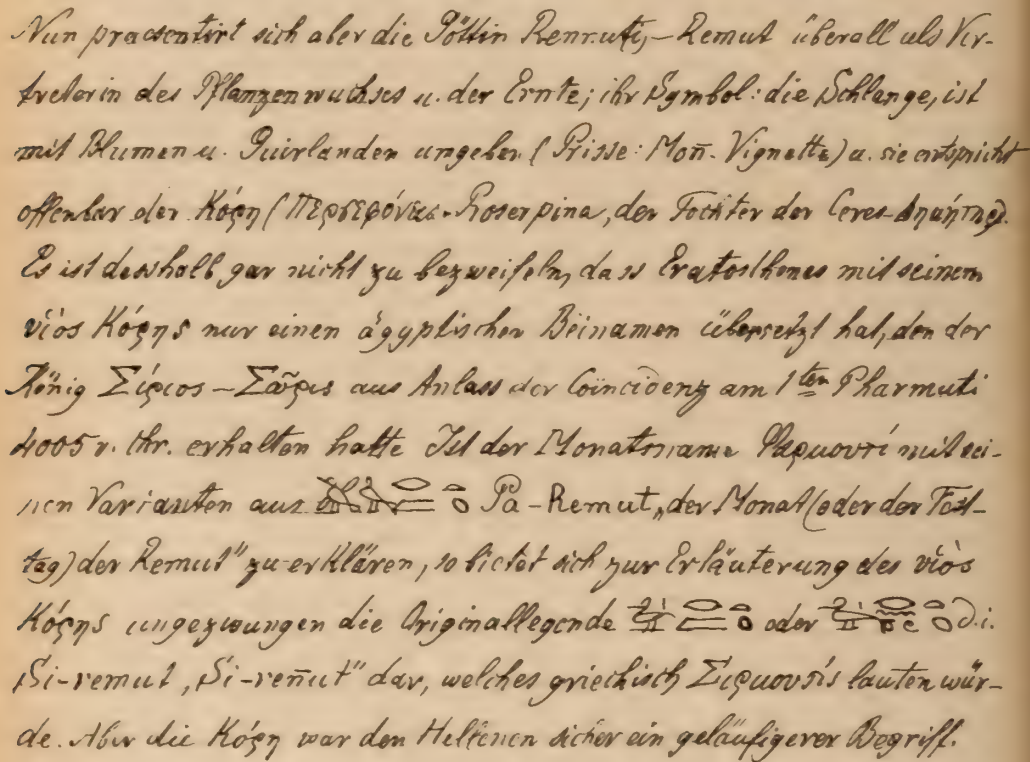 Nun praesentirt sich aber die Göttin Rennuti, – Remut überall als Ver-
treterin des Pflanzenwuchses u. der Ernte; ihr Symbol: die Schlange, ist
mit Blumen u. Guirlanden umgeben (Prisse: Mon̄. Vignette) u. sie entspricht
offenbar der Κόρη (Περσεφόνεια-Proserpina, der Tochter der Ceres-Δημήτηρ).
Es ist desshalb gar nicht zu bezweifeln, dass Eratosthenes mit seinem
υἱὸς Κόρης nur einen ägyptischen Beinamen übersetzt hat, den der
König Σίριος – Σαῶρις aus Anlass der Coïncidenz am 1ten Pharmuti
4005 v. Chr. erhalten hatte Ist der Monatsname Φαρμουτί mit sei-
nen Varianten aus Pa-Remut „der Monat (oder der Fest-
tag) der Remut" zu erklären, so bietet sich zur Erläuterung des υἱὸς
Κόρης ungezwungen die Originallegende oder d. i.
Si-remut, „Si-ren̄ut" dar, welches griechisch Σιρμουτίς lauten wür-
de. Aber die Κόρη war den Hellenen sicher ein geläufigerer Begriff.